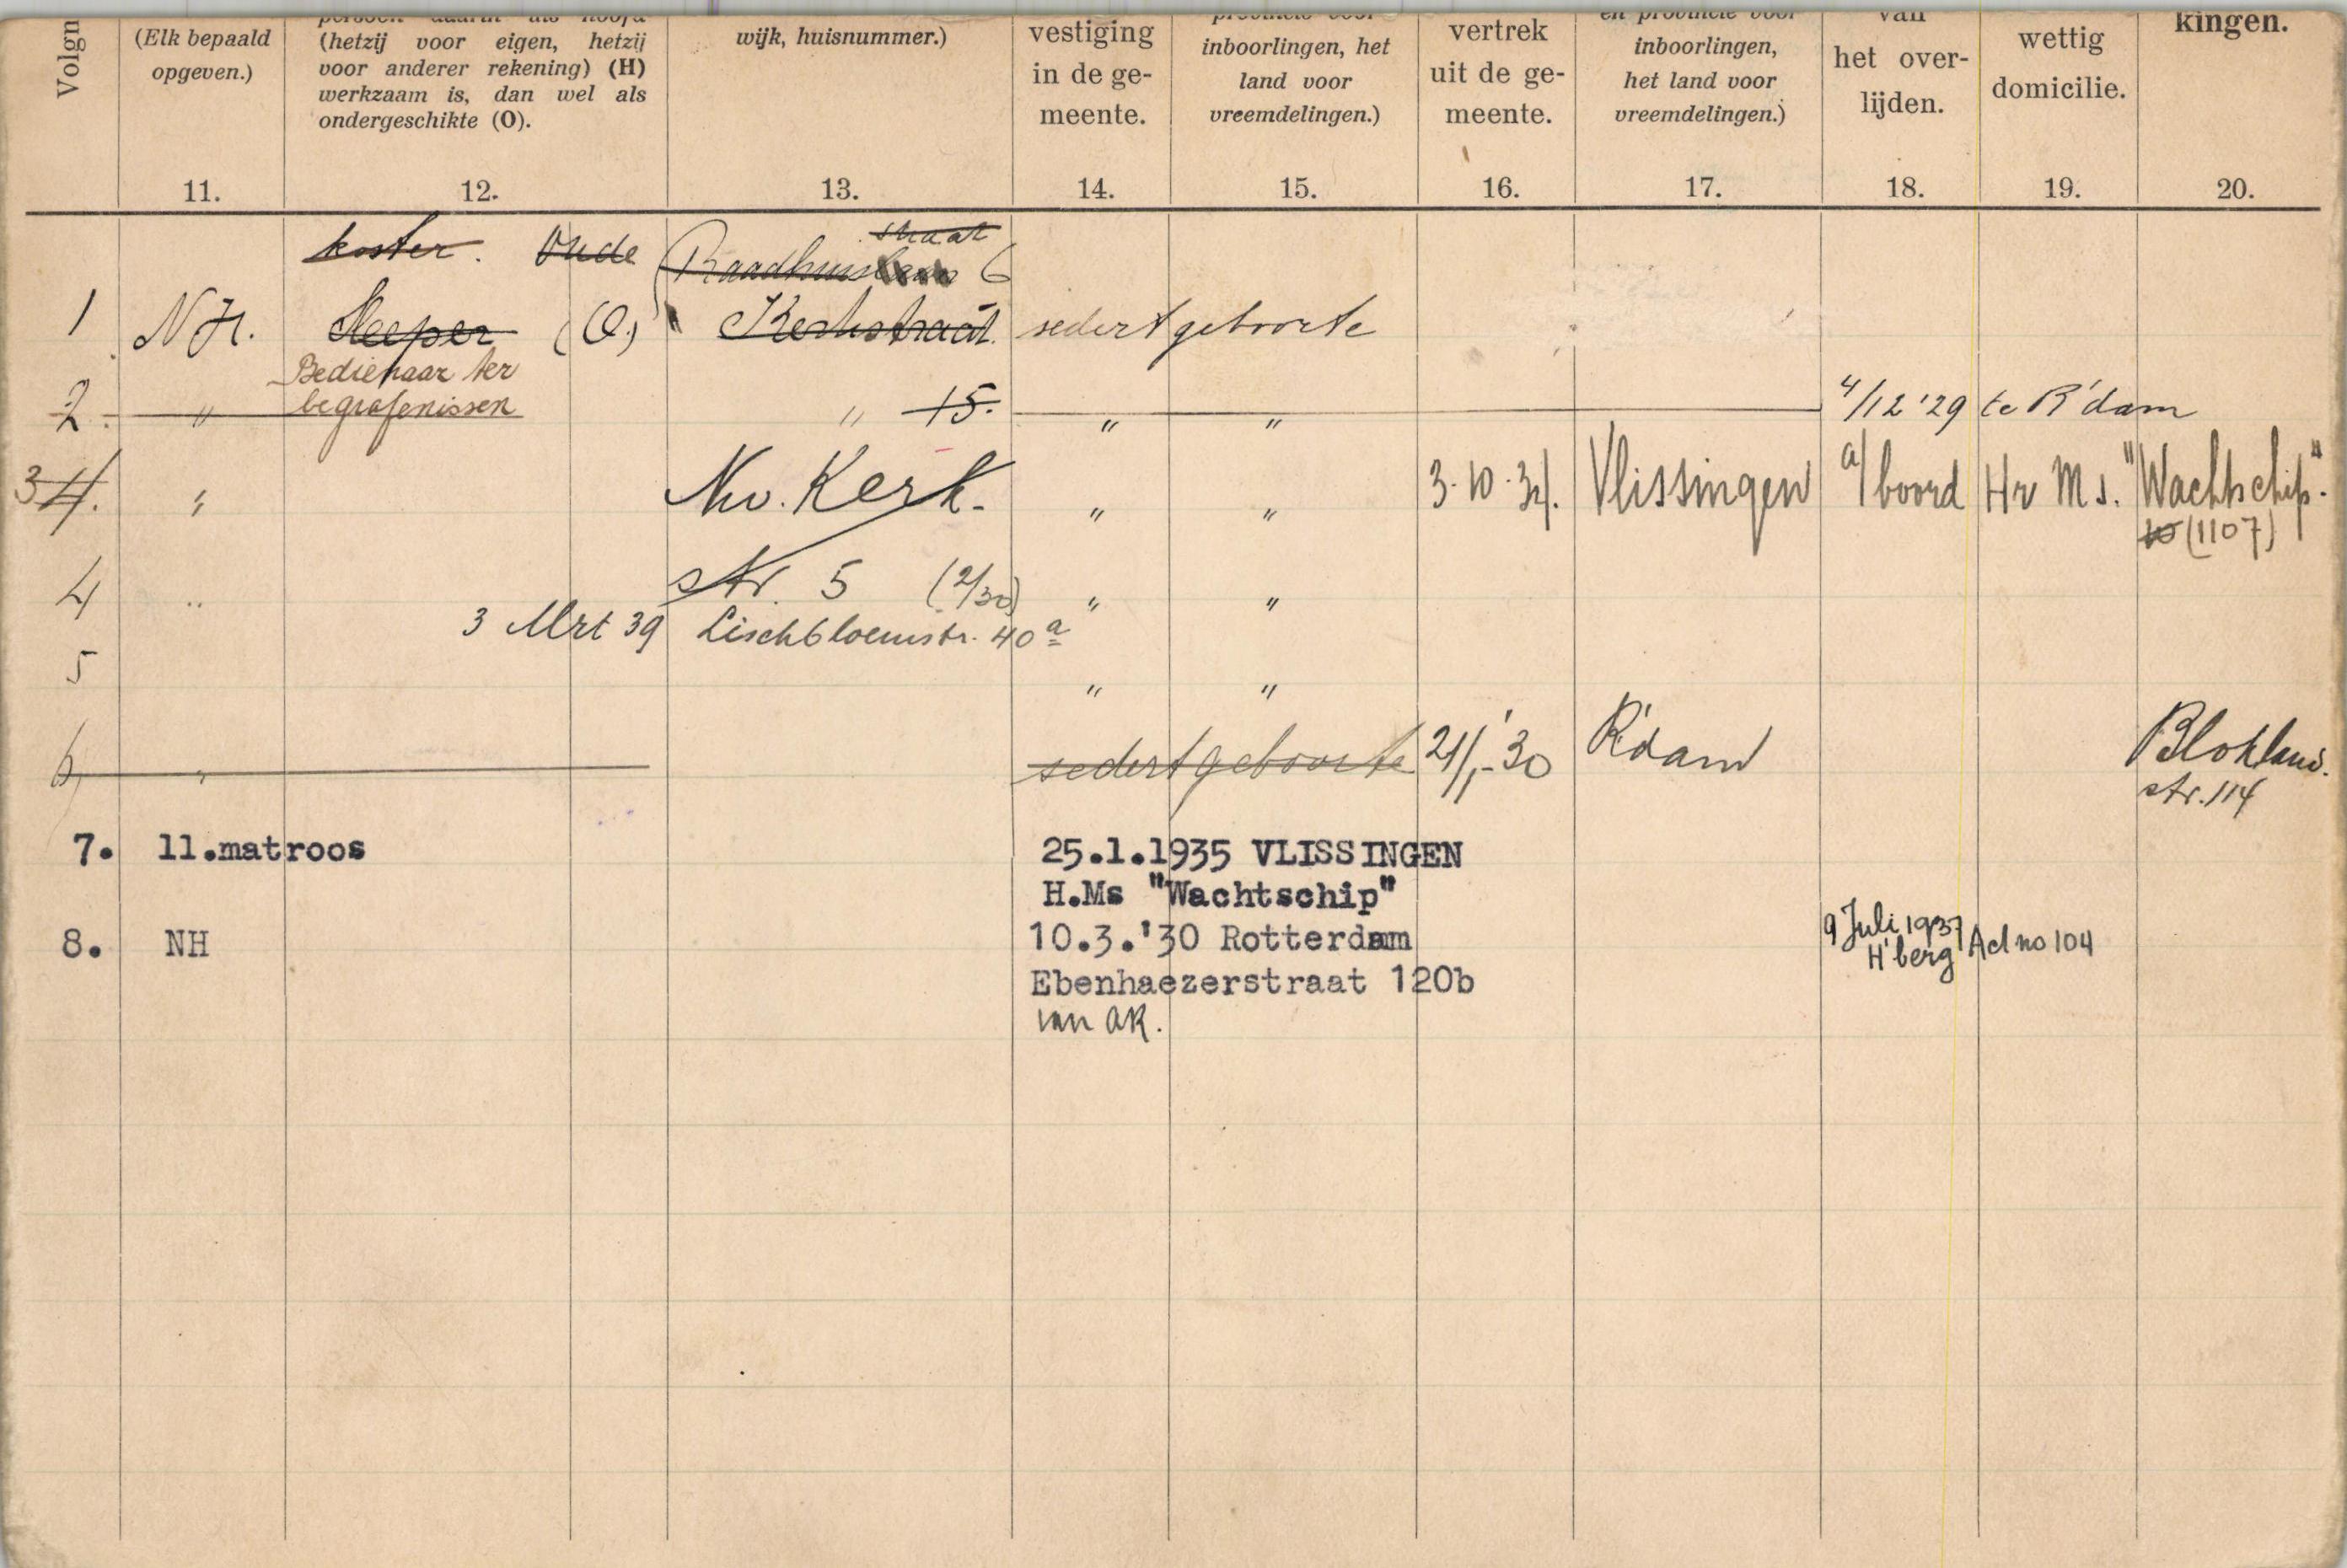 Volgn
(Elk bepaald
opgeven.)
11.
persoon daarin als hoofd
(hetzij voor eigen, hetzij
voor anderer rekening) (H)
werkzaam is, dan wel als
ondergeschikte (O).
12.
wijk, huisnummer.)
13.
vestiging
in de ge-
meente.
14.
provincie voor
inboorlingen, het
land voor
vreemdelingen.)
15.
vertrek
uit de ge-
meente.
16.
en provincie voor
inboorlingen,
het land voor
vreemdelingen.)
17.
van
het over-
lijden.
18.
wettig
domicilie.
19.
kingen.
20.
straat
koster. Oude Raadhuis 6
1 N H. Sleeper (O.) Kerkstraat sedert geboorte
Bedienaar ter
begrafenissen
2. " " 15. " " 4/12 '29 te R'dam
3 4. " Nw. Kerk- " " 3.10.34. Vlissingen a/boord Hr Ms. "Wachtschip."
(1107)
4 " str. 5 (2/30) " "
3 Mrt 39 Lischbloemstr. 40a
5 " "
6 " sedert geboorte 21/1-'30 R'dam Blokland.
str. 114
7. 11.matroos 25.1.1935 VLISSINGEN
H.Ms "Wachtschip"
8. NH 10.3.'30 Rotterdam 9 Juli 1937 H'berg Act no 104
Ebenhaezerstraat 120b
van AK.